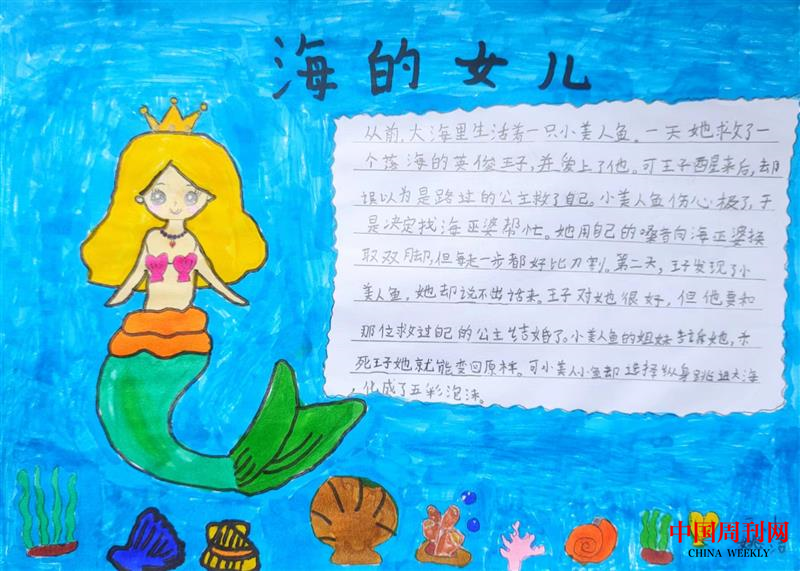 海的女儿
从前,大海里生活着一只小美人鱼。一天她救了一
个落海的英俊王子,并爱上了他。可王子醒来后,却
误以为是路过的公主救了自己。小美人鱼伤心极了,于
是决定找海巫婆帮忙。她用自己的嗓音向海巫婆换
取双脚,但每走一步都好比刀割。第二天,王子发现了小
美人鱼,她却说不出话来。王子对她很好,但他要和
那位救过自己的公主结婚了。小美人鱼的姐姐告诉她,杀
死王子她就能变回原样。可小美人鱼却选择纵身跳进大海
,化成了五彩泡沫。
中国周刊网
CHINA WEEKLY